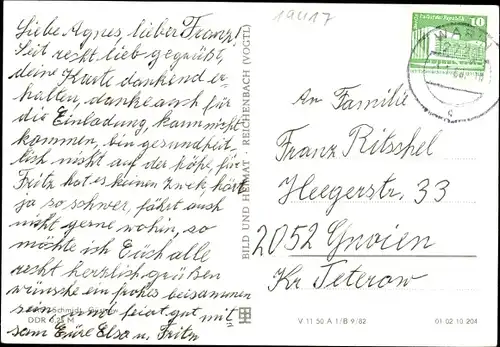 19417
Liebe Agnes, lieber Franz!
Seit recht lieb gegrüßt,
deine Karte dankend er-
halten, danke auch für
die Einladung, kann nicht
kommen, bin gesundheit-
lich nicht auf der Höhe, für
Fritz hat es keinen Zwek, hört
ja so schwer, fährt auch
nicht gerne wohin, so
möchte ich Euch alle
recht herzlich grüßen
wünsche ein frohes beisammen
sein und feiert gut mit
sam Eure Elsa u. Fritz
Schmidt
DDR 0,25 M
BILD UND HEIMAT · REICHENBACH (VOGTL)
10
WAR
An Familie
Franz Ritschel
Heegerstr. 33
2052 Gnoien
Kr Teterow
V 11 50 A 1/B 9/82
01 02 10 204